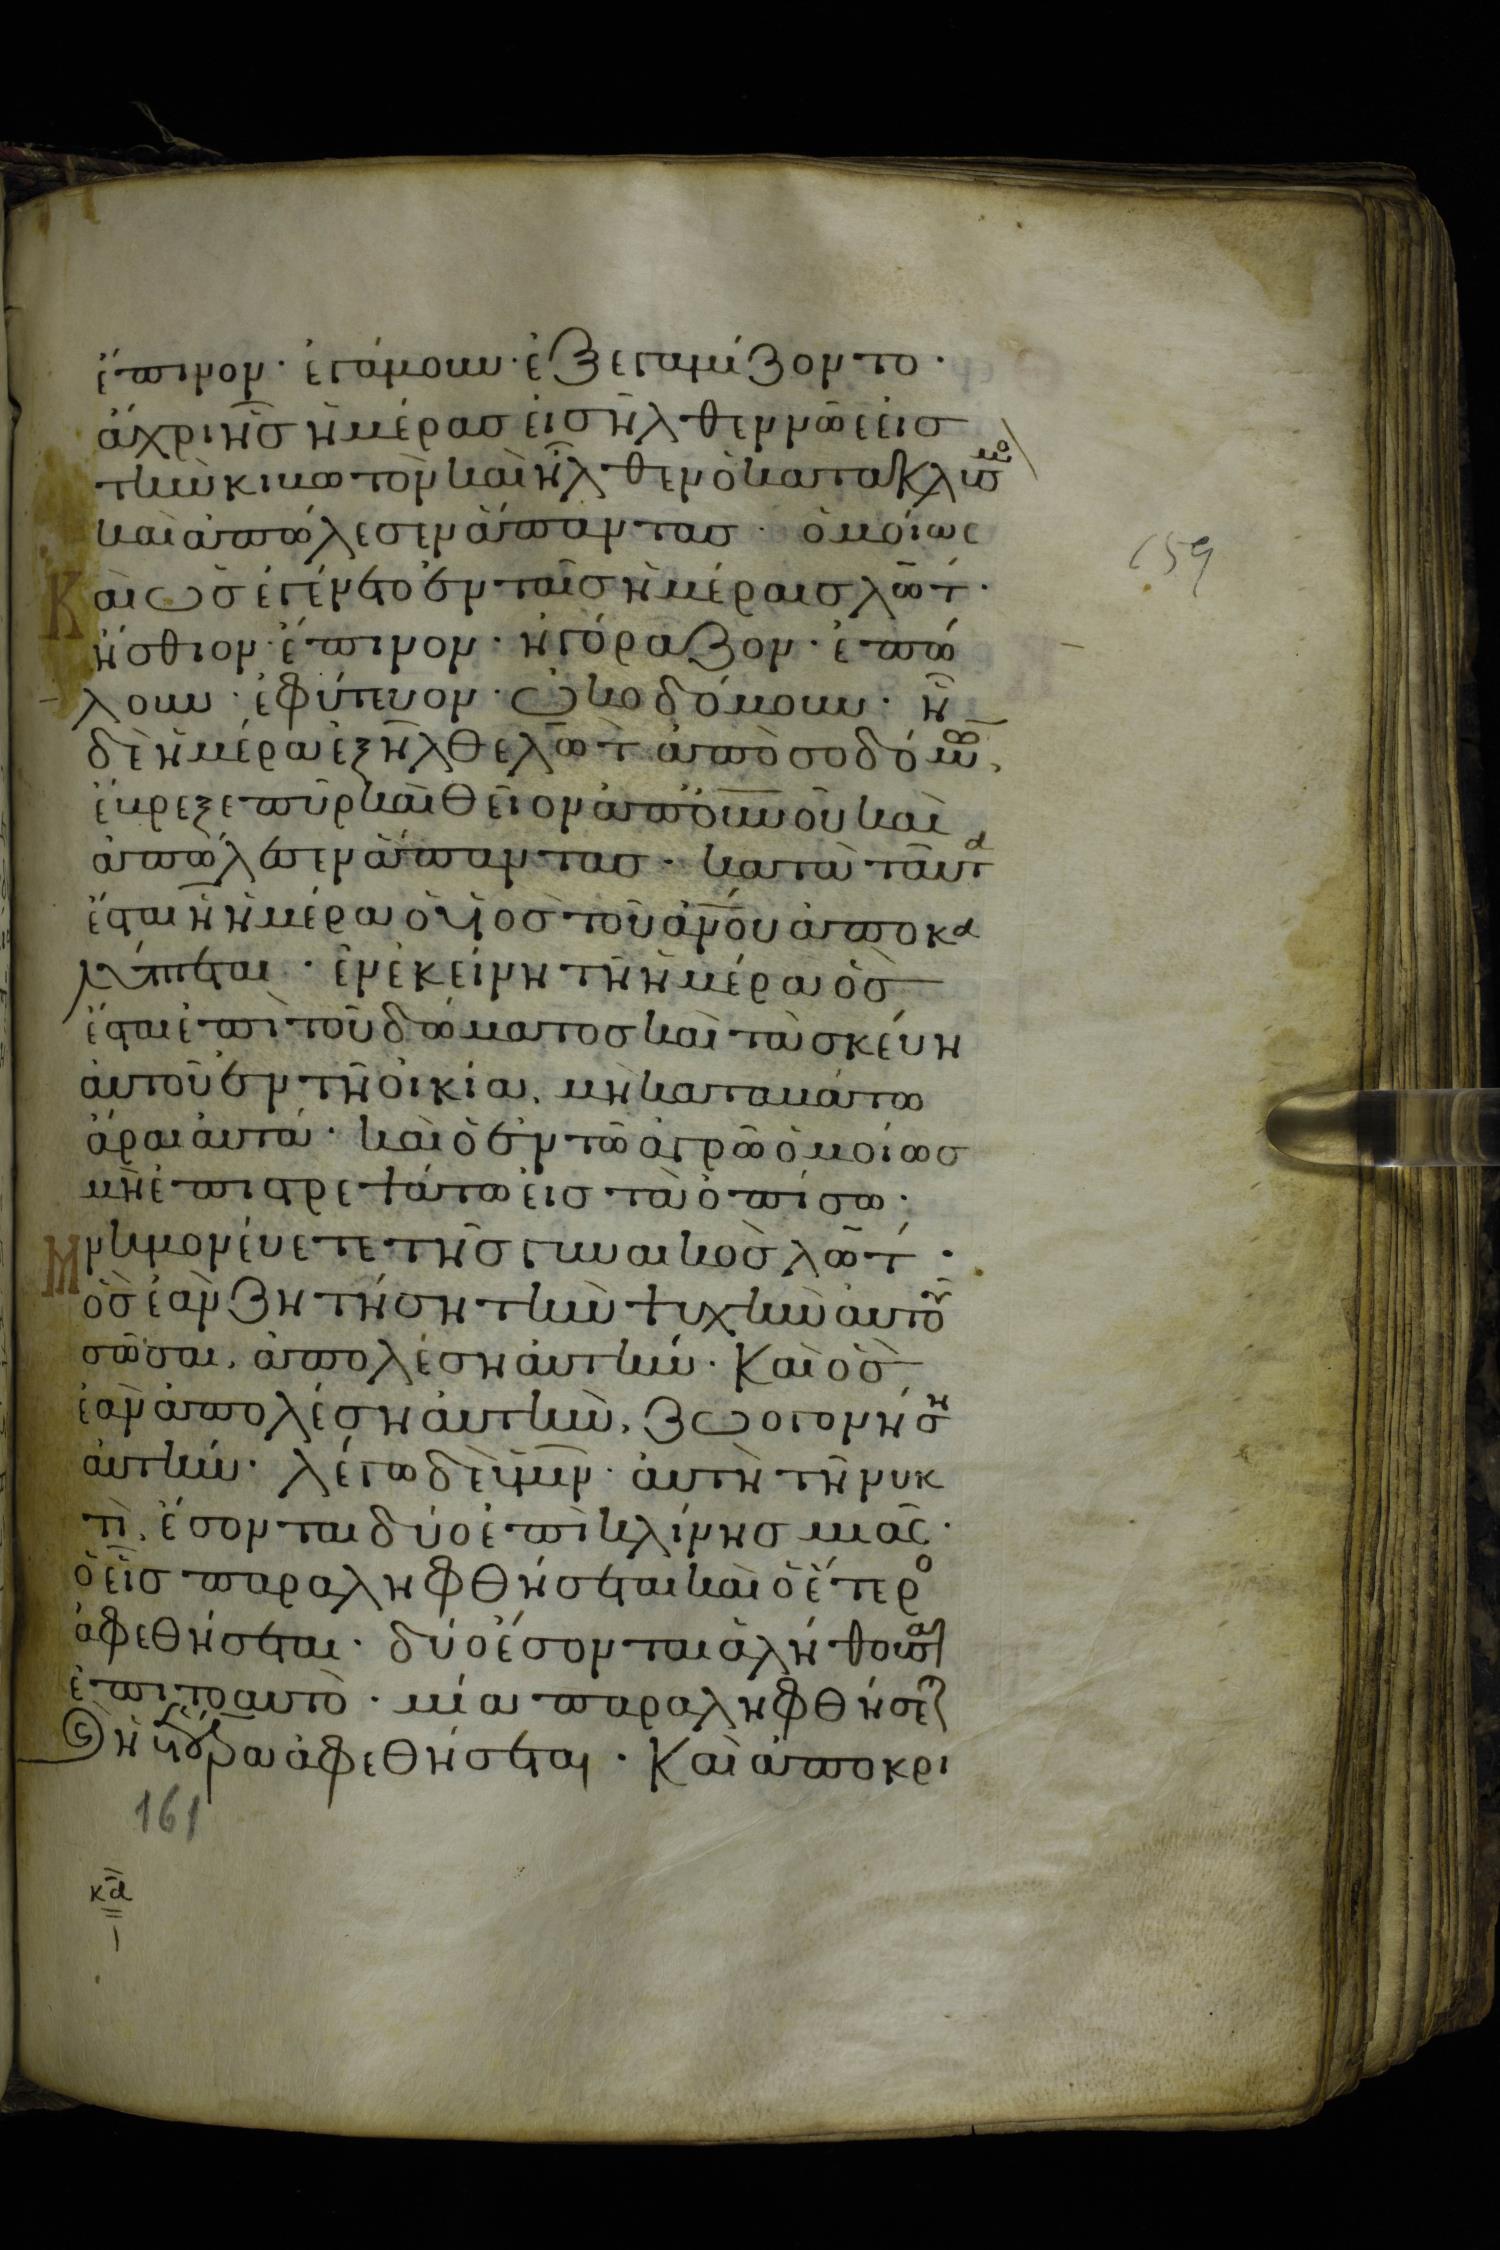 ἔπινον· ἐγάμουν· ἐξεγαμίζοντο·
ἄχρι ἧς ἡμέρας εἰσῆλθεν νῶε εἰς
τὴν κιβωτὸν καὶ ἦλθεν ὁ κατακλυσμο
καὶ ἀπώλεσεν ἅπαντας· ὁμοίως
Καὶ ὡς ἐγένετο ἐν ταῖς ἡμέραις λώτ·
ἤσθιον· ἔπινον· ἠγόραζον· ἐπώ
λουν· ἐφύτευον· ὠκοδόμουν· ἧ
δὲ ἡμέρα ἐξῆλθε λὼτ ἀπὸ σοδόμω,
ἔβρεξε πῦρ καὶ θεῖον ἀπὸ οὐνοῦ καὶ
ἀπώλεσεν ἅπαντας· κατὰ ταῦτα
ἔσται ἡ ἡμέρα ὁ υἱος τοῦ ἀνου ἀποκα
λύπτεται· ἐν ἐκείνη τῆ ἡμέρα ὃς
ἔσται ἐπὶ τοῦ δώματος καὶ τὰ σκεύη
αὐτοῦ ἐν τῆ οἰκία, μὴ καταβάτω
ἆραι αὐτά· καὶ ὁ ἐν τῶ ἀγρῶ ὁμοίως
μὴ ἐπιστρεψάτω εἰς τὰ ὀπίσω·
Μνημονέυετε τῆς γυναικὸς λώτ·
ὃς ἐὰν ζητήση τὴν ψυχὴν αὐτοῦ
σῶσαι, ἀπολέση αὐτήν· Καὶ ὃς
ἐὰν ἀπολέση αὐτὴν, ζωογονήση
αὐτήν· λέγω δὲ ὑμῖν· αὐτὴ τῆ νυκ
τὶ, ἔσονται δύο ἐπὶ κλίνης μιᾶς·
ὁ εἷς παραληφθήσεται καὶ ὁ ἕτερο
ἀφεθήσεται· δύο ἔσονται ἀλήθουσαι
ἐπιτοαυτὸ· μία παραληφθήσεται
ἡ δὲ ἑτέρα ἀφεθήσεται· Καὶ ἀποκρι
159
161
κα